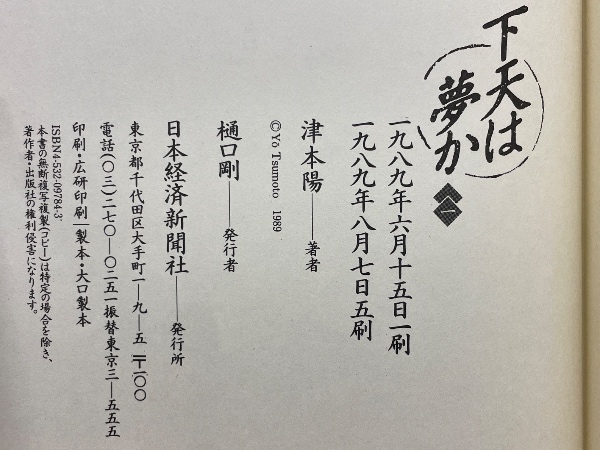 下天は
夢か
一
一九八九年六月十五日一刷
一九八九年八月七日五刷
津本陽――著者
© Yō Tsumoto 1989
樋口剛――発行者
日本経済新聞社――発行所
東京都千代田区大手町一―九―五 〒一〇〇
電話(〇三)二七〇―〇二五一振替東京三―五五五
印刷・広研印刷|製本・大口製本
ISBN4-532-09784-3
本書の無断複写複製(コピー)は特定の場合を除き、
著作者・出版社の権利侵害になります。